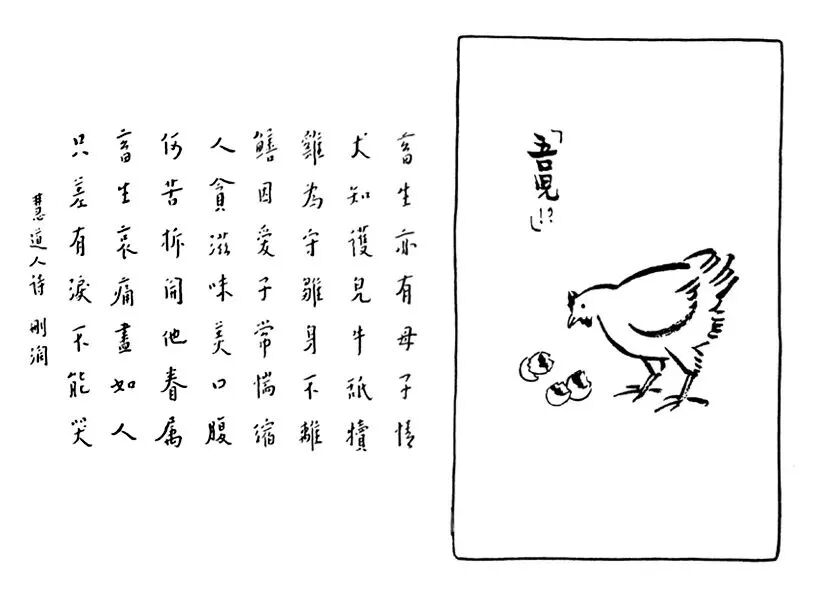 「吾兒!?」
畜生亦有母子情
犬知護兒牛舐犢
雞為守雛身不離
鱔因愛子常惴縮
人貪滋味美口腹
何苦拆開他眷属
畜生哀痛盡如人
只差有淚不能哭
慧道人詩 刪潤